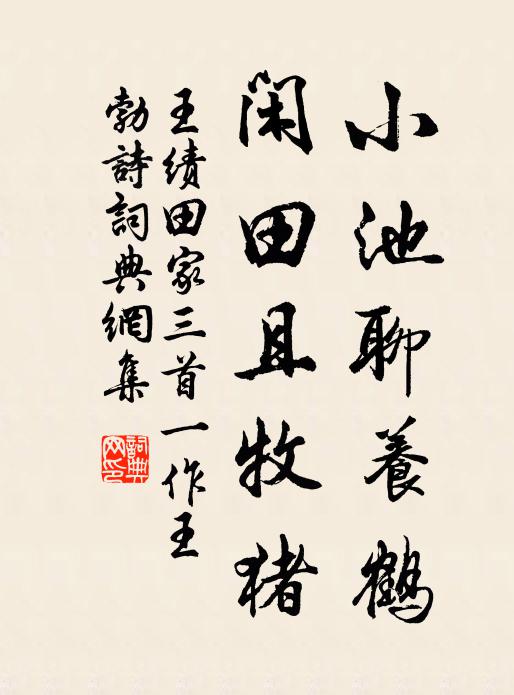 小池聊養鶴
閑田且牧猪
王績田家三首一作王
勃詩詞典網集
詞典
网印